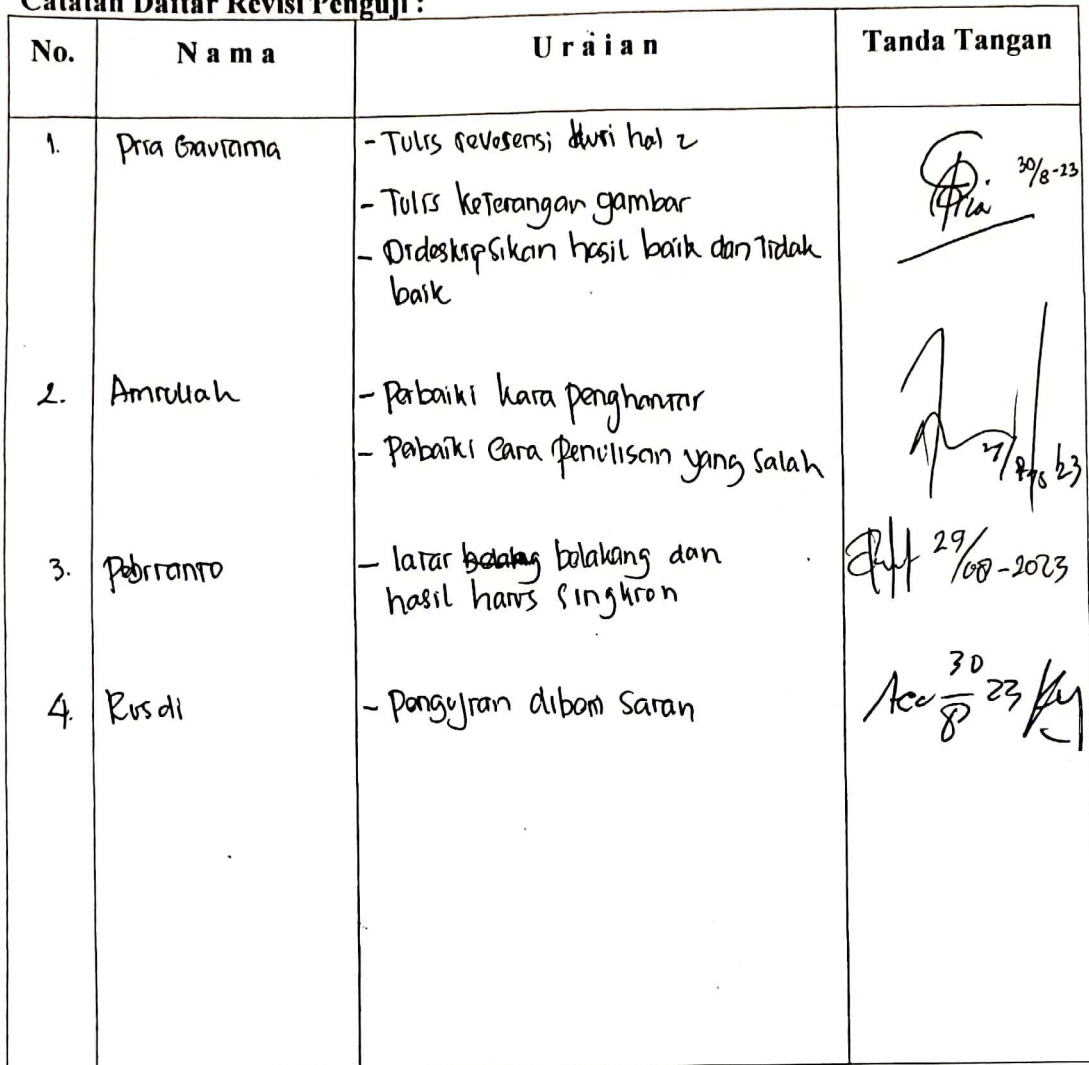 Catatan Daftar Revisi Penguji :
No. N a m a U r a i a n Tanda Tangan
1. Pria Gautama - Tulis reverensi dari hal 2
Pria 30/8-23
- Tulis keterangan gambar
- Dideskripsikan hasil baik dan tidak
baik
2. Amrullah - Perbaiki kata penghantar
- Perbaiki cara penulisan yang salah
23
3. Pebrianto - latar belakang dan
hasil harus singkron
29/08-2023
4. Rusdi - Pengujian diberi saran
Acc 30/8 23